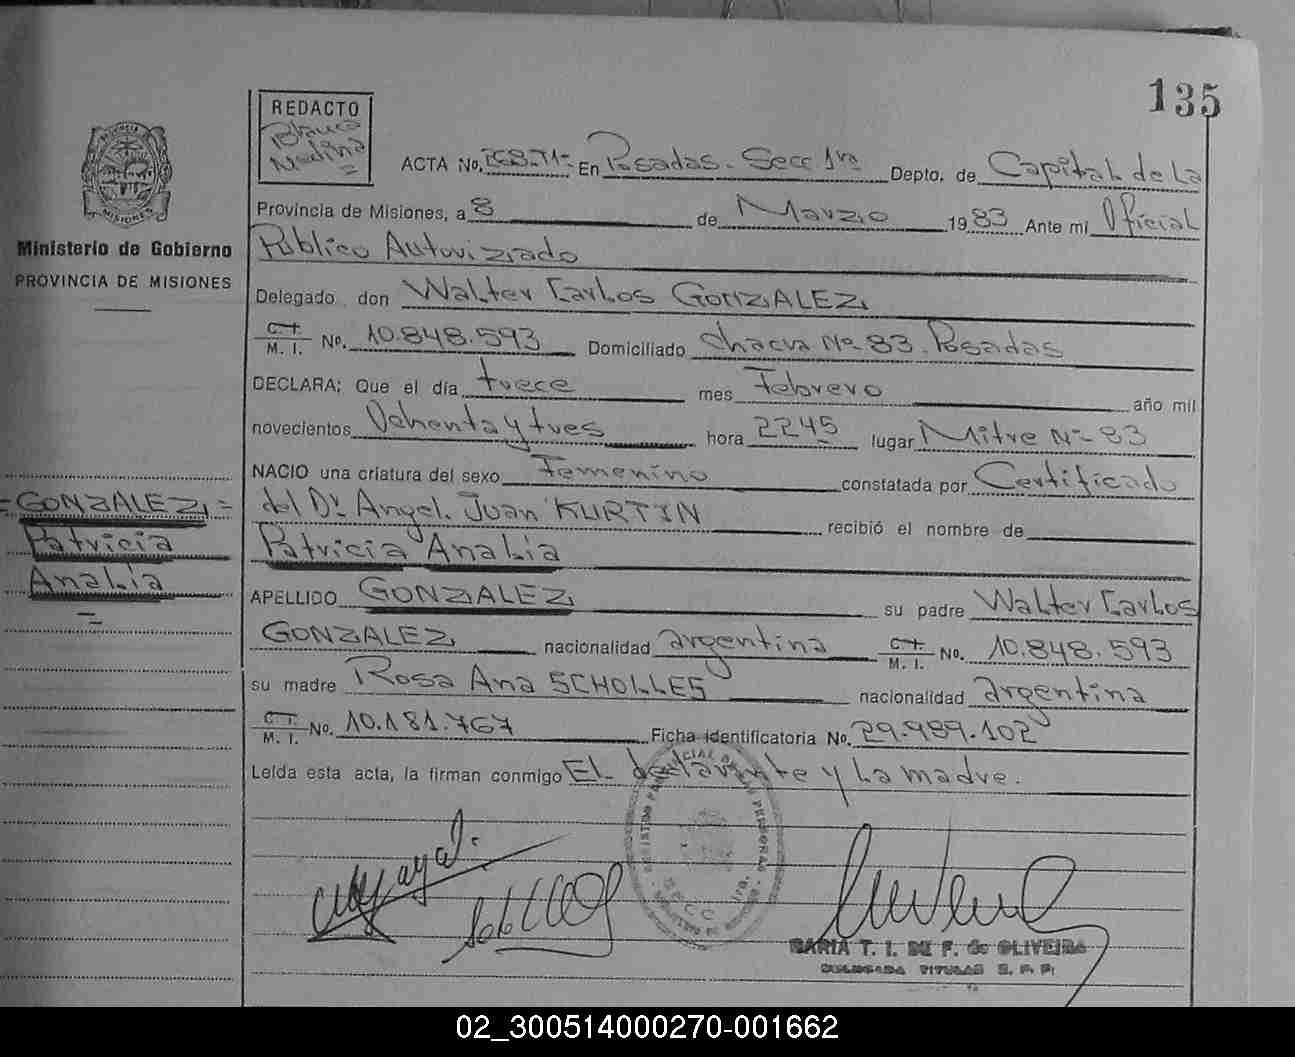 135
REDACTO
Blanca
Medina
ACTA No. 268-T1- En Posadas - Secc 1ra Depto. de Capital de La
Provincia de Misiones, a 8 de Marzo 1983 Ante mi Oficial
Público Autorizado
Delegado don Walter Carlos GONZALEZ
C. I.
M. I. No. 10.848.593 Domiciliado Chacra Nº 83. Posadas
DECLARA: Que el día trece mes Febrero año mil
novecientos Ochenta y tres hora 2245 lugar Mitre Nº 83
NACIO una criatura del sexo Femenino constatada por Certificado
del Dr. Angel Juan KURTIN recibió el nombre de
Patricia Analia
APELLIDO GONZALEZ su padre Walter Carlos
GONZALEZ nacionalidad argentina C. I. M. I. No. 10.848.593
su madre Rosa Ana SCHOLLES nacionalidad argentina
C. I.
M. I. No. 10.181.767 Ficha identificatoria No. 29.989.102
Leída esta acta, la firman conmigo EL declarante y La madre.
PROVINCIA DE MISIONES
Ministerio de Gobierno
PROVINCIA DE MISIONES
= GONZALEZ =
Patricia
Analia
SECC 1ra.
MARIA T. I. DE F. de OLIVEIRA
DELEGADA TITULAR R. P. P.
02_300514000270-001662